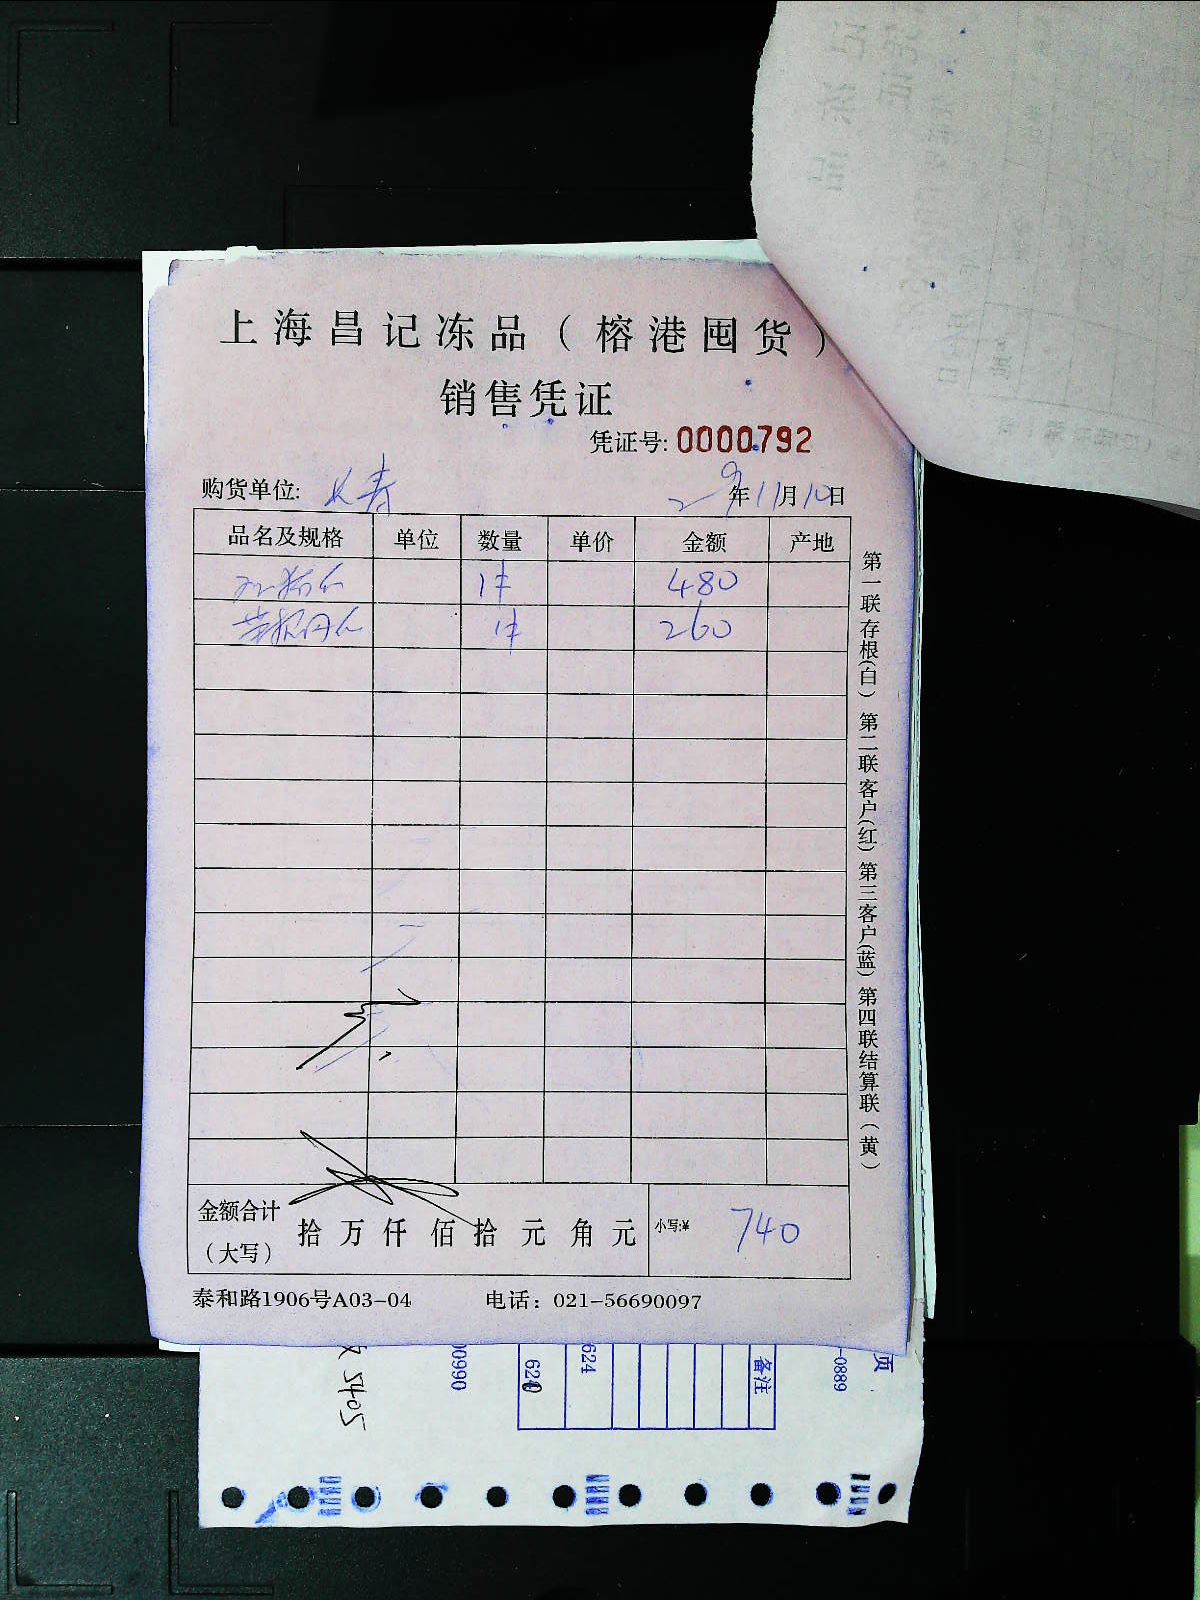 上海昌记冻品（榕港囤货）
销售凭证
凭证号: 0000792
购货单位: 长寿 29年11月10日
品名及规格 单位 数量 单价 金额 产地
1件 480
1件 260
金额合计（大写） 拾 万 仟 佰 拾 元 角 元 小写:¥ 740
泰和路1906号A03-04 电话：021-56690097
第一联存根(白) 第二联客户(红) 第三客户(蓝) 第四联结算联(黄)
5405
00990
620
624
备注
-0889
页